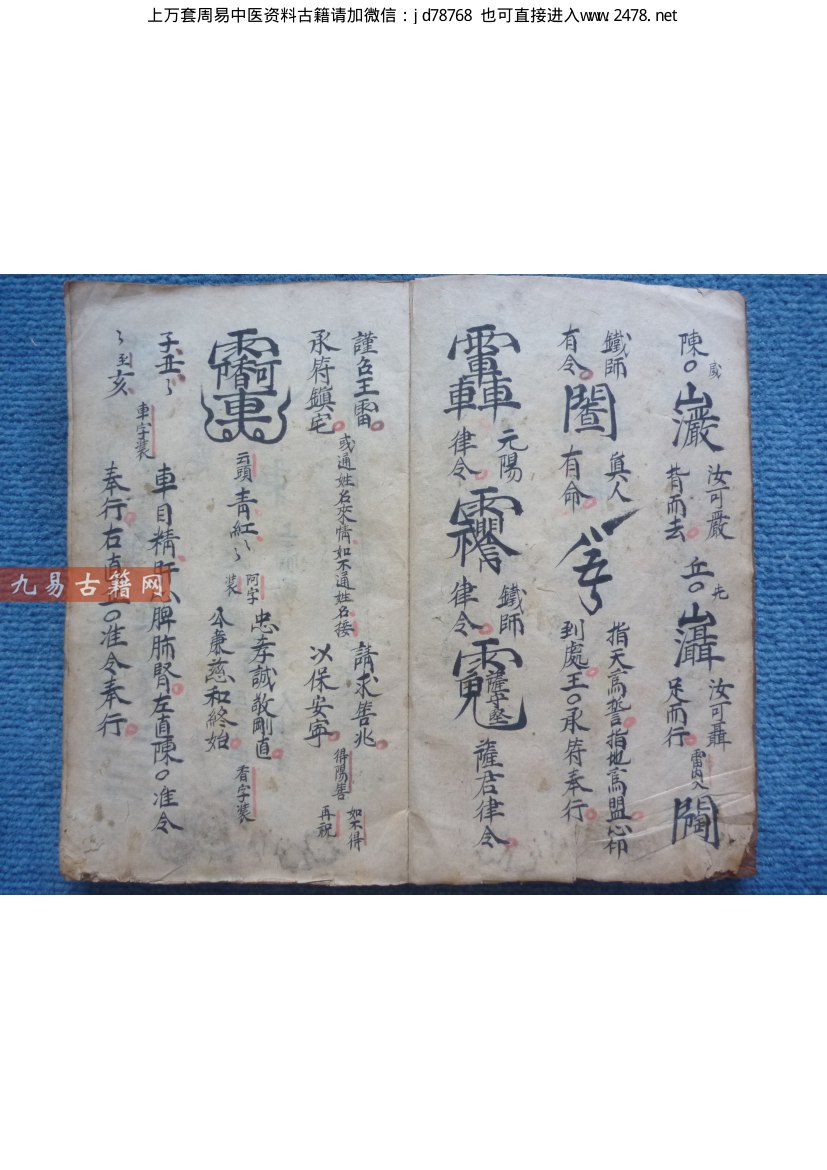 上万套周易中医资料古籍请加微信：jd78768 也可直接进入www.2478.net
陳○
汝可嚴
背而去
汝可聶
足而行
雷内入
鐵師
有令
真人
有命
指天爲誓指地爲盟心印
到處王○承符奉行
元陽
律令
鐵師
律令
薩守堅
薩君律令
謹召王雷
承符鎮宅
或通姓名來情如不通姓名接
請求善兆
以保安寧
得陽善
如不得
再祝
云頭青紅
阿字
裝
忠孝誠敬剛直
慈和終始
香字裝
子丑
到亥
車字裝
車目精
脾肺腎左直陳○准令
奉行右直
○准令奉行
九易古籍网